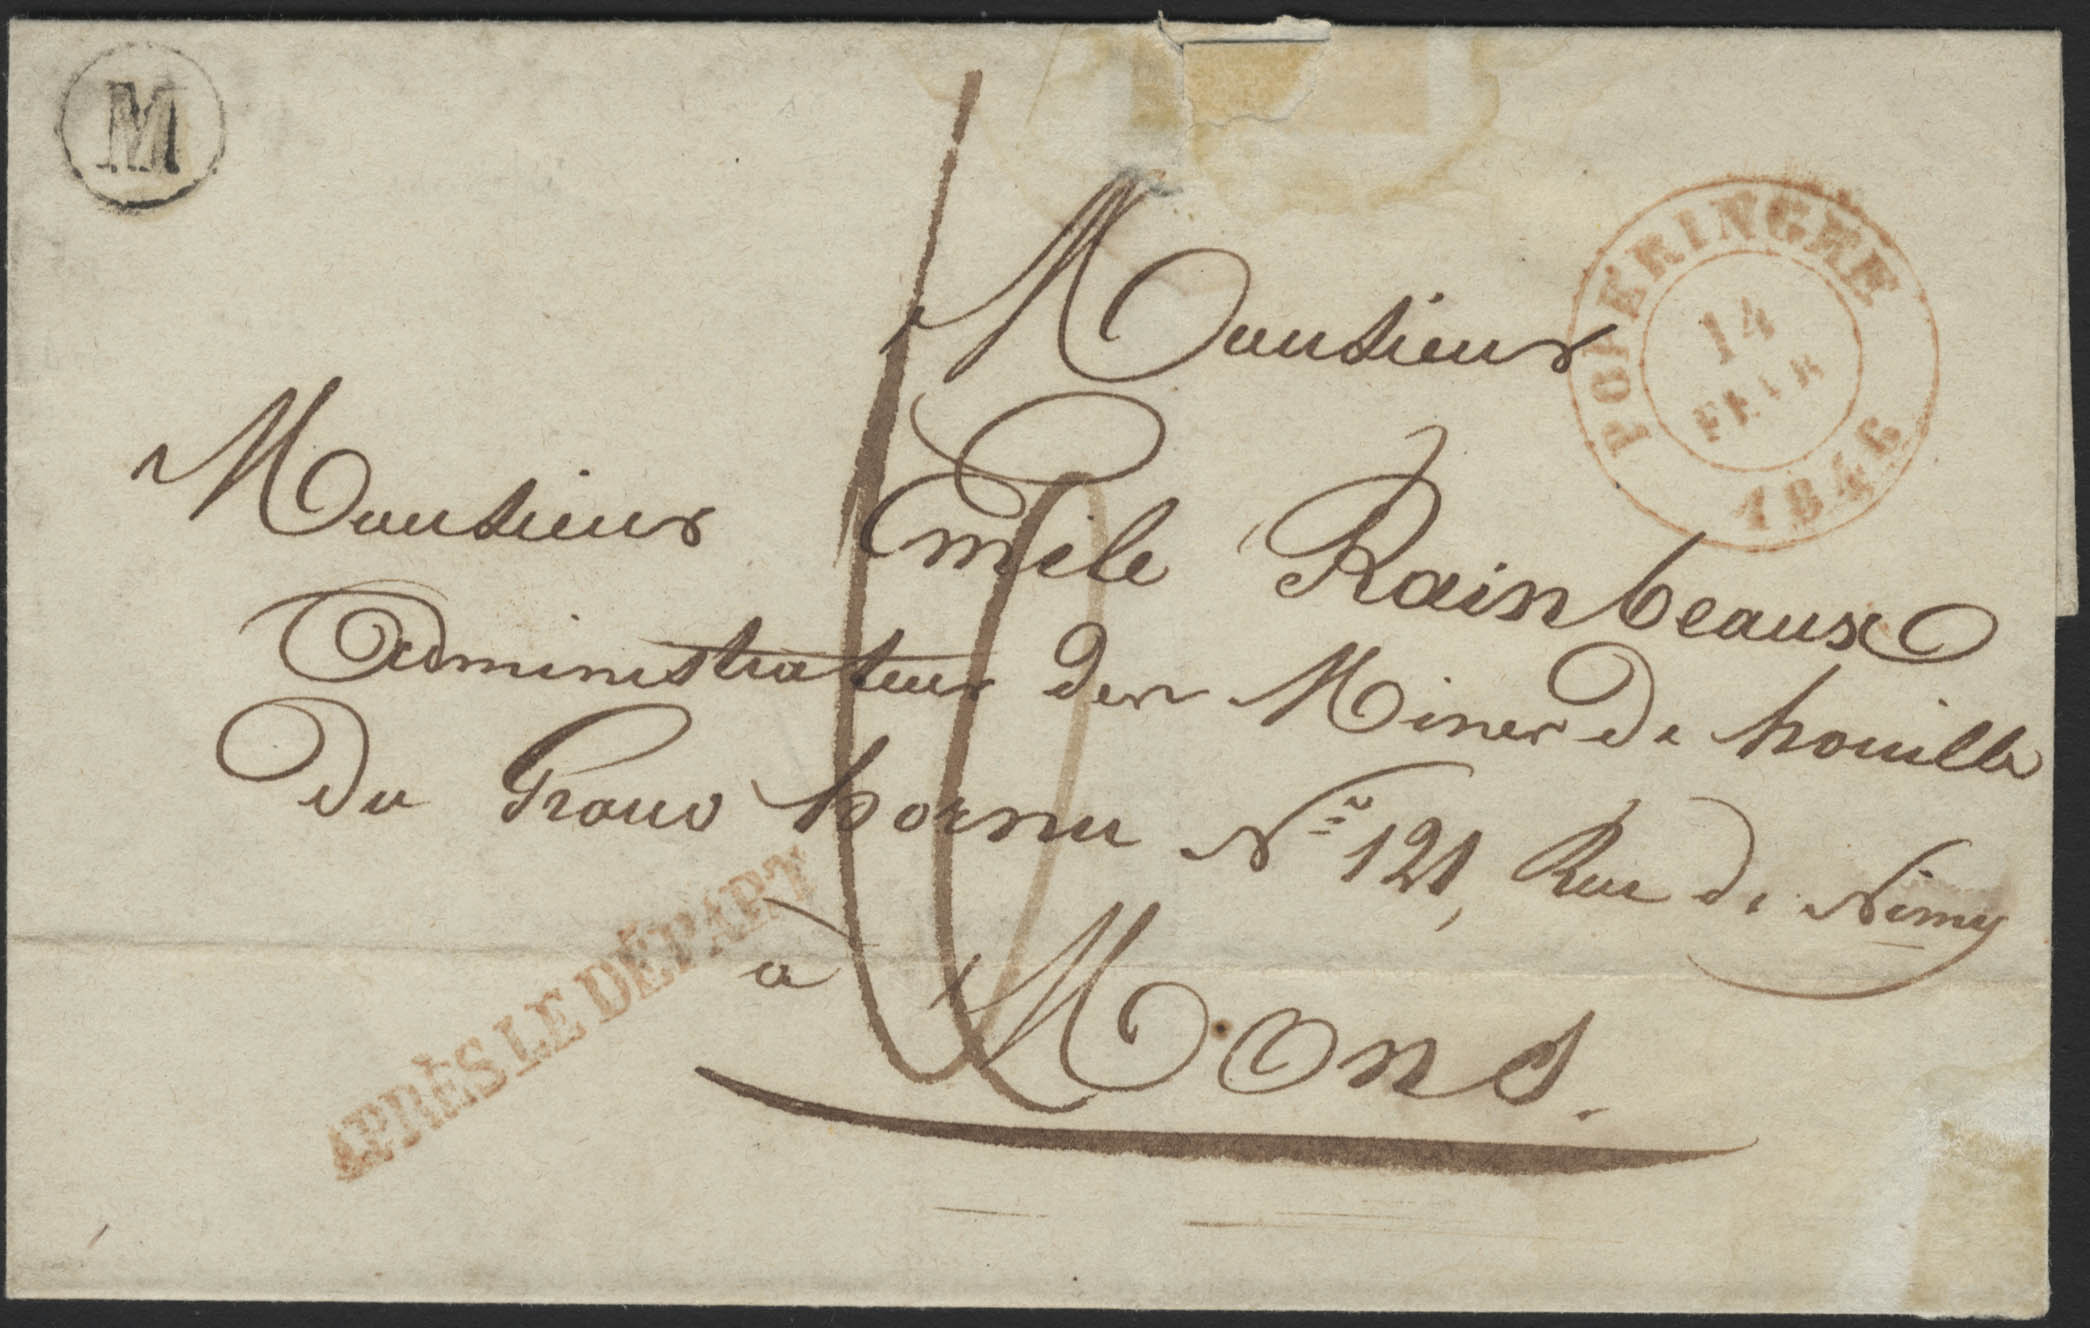 M
POPERINGHE
14
FEVR
1846
Monsieur
Monsieur Emile Rainbeaux
Administrateur des Mines de houille
du Grand hornu N° 121, Rue de Nimy
à Mons.
APRÈS LE DÉPART